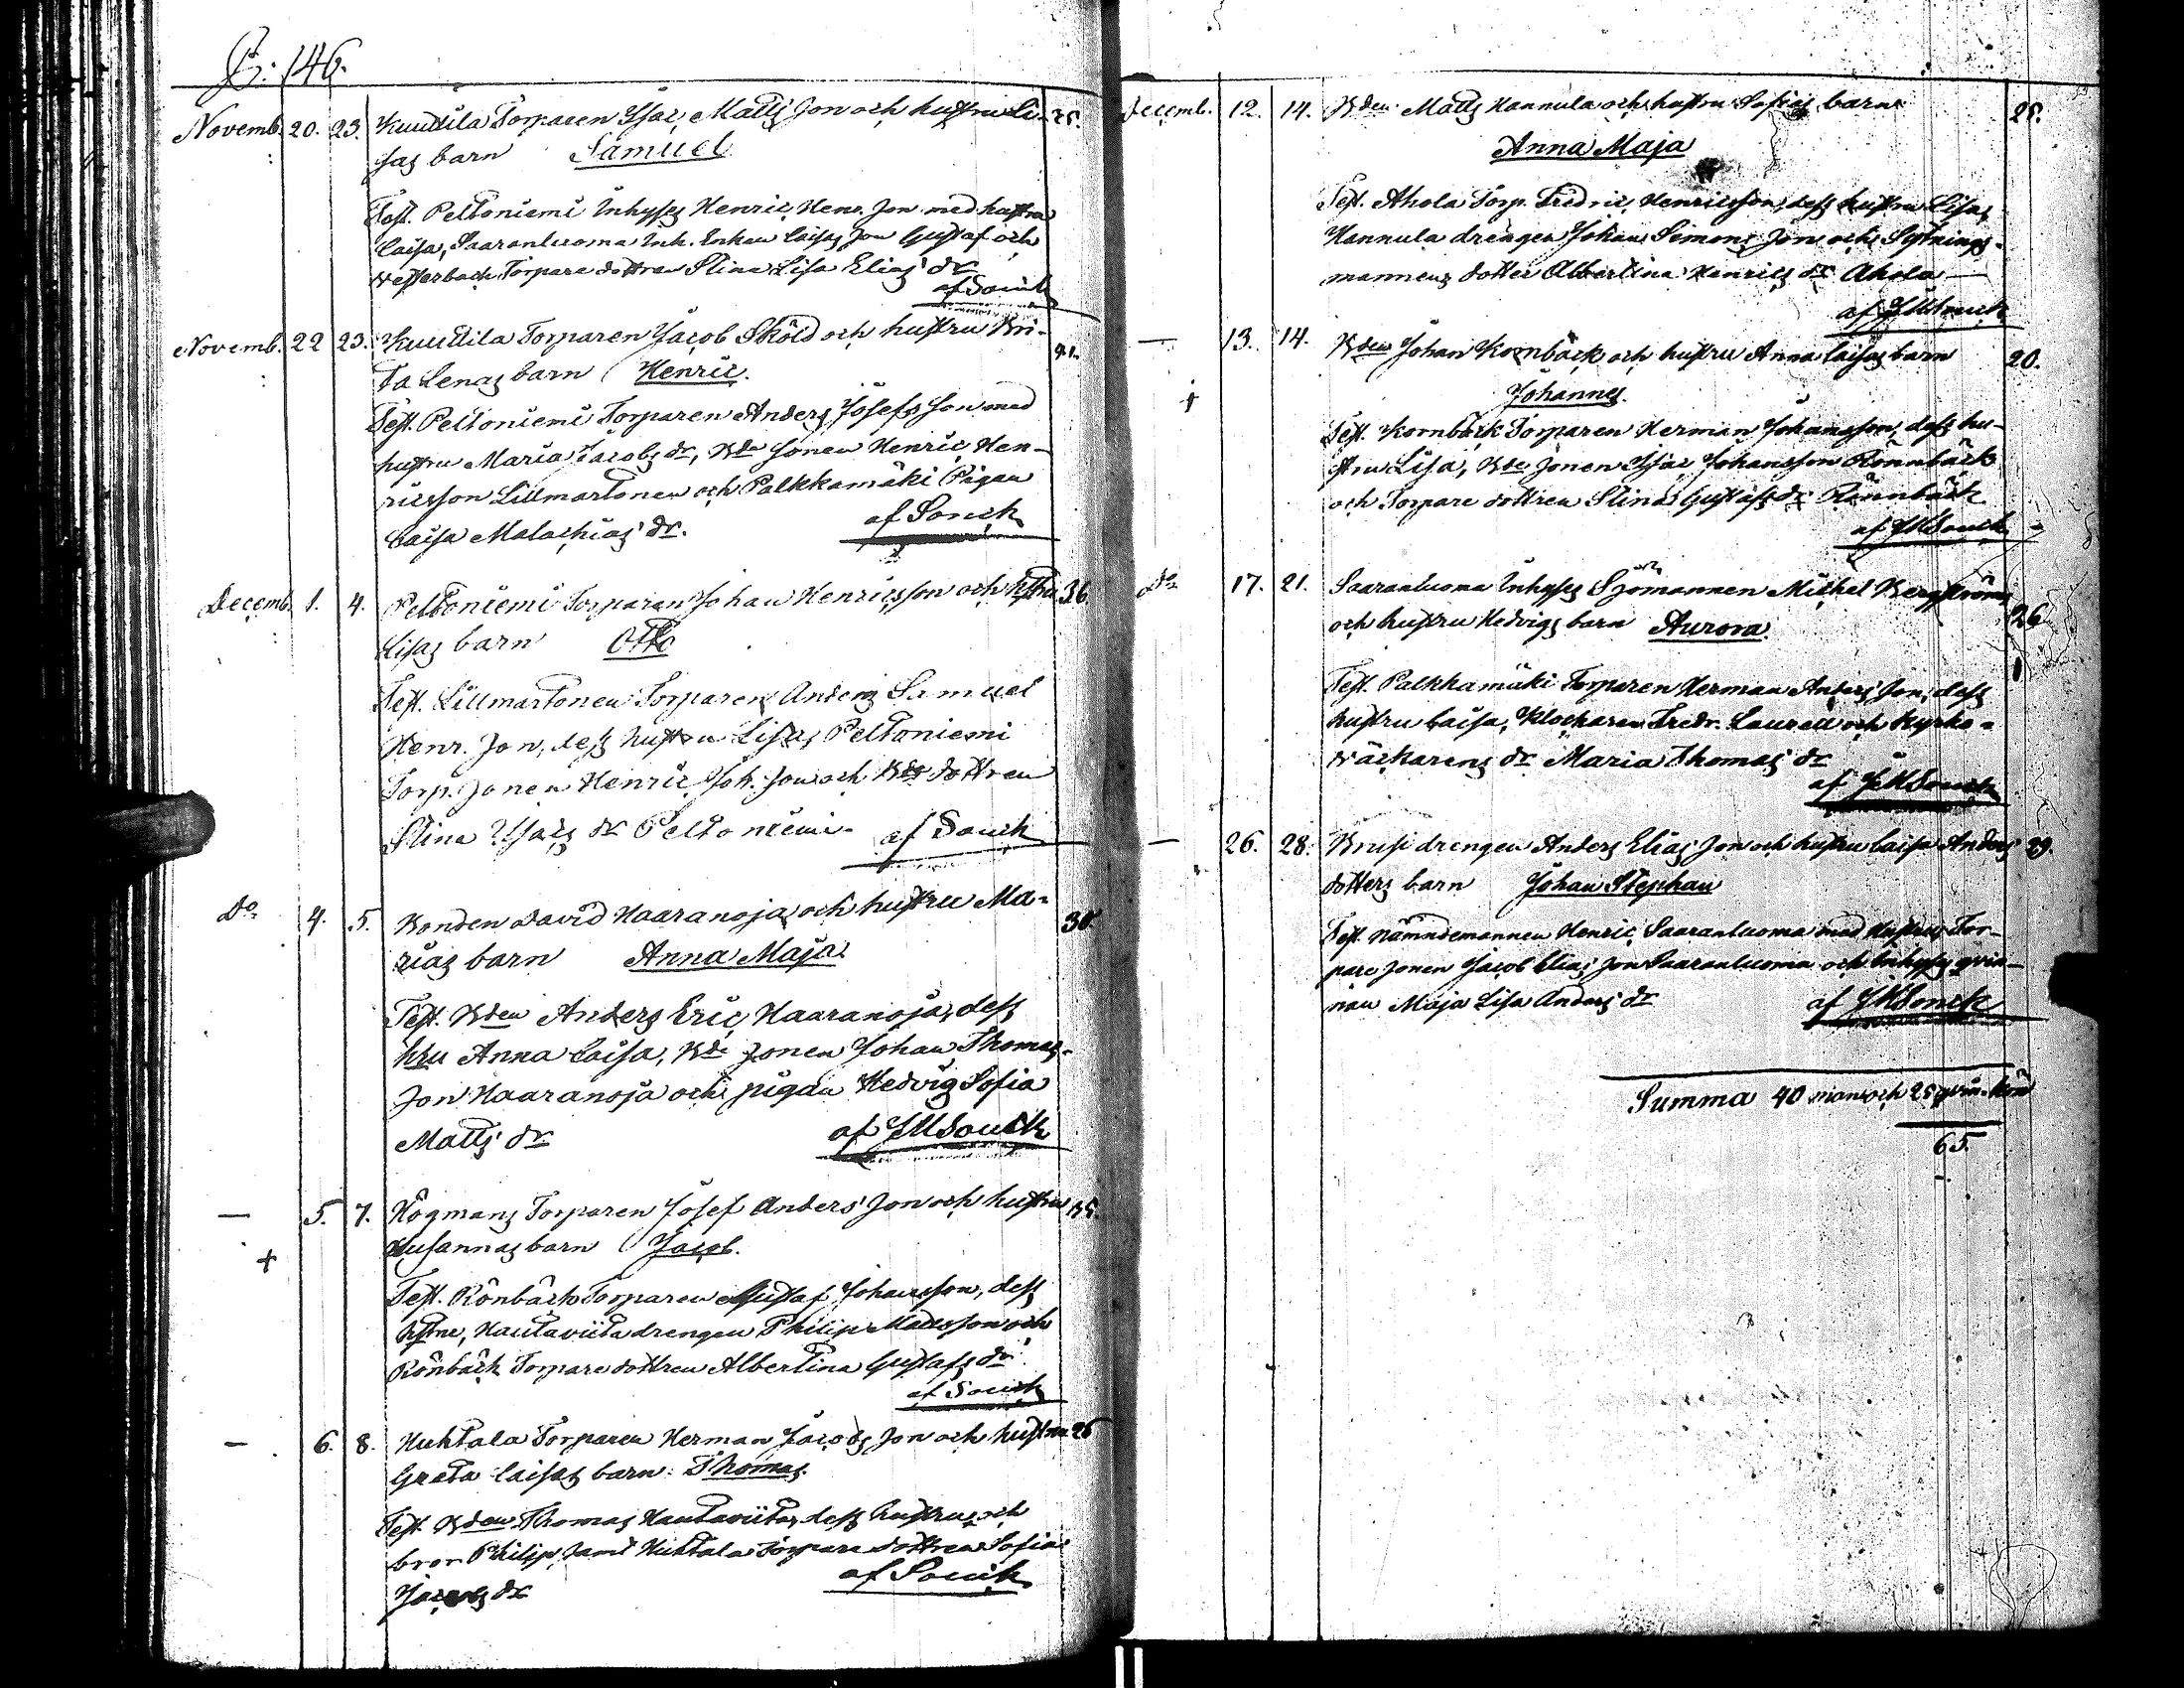 146.
Novemb. 20. 23. Kuuttila Torparen Isac Matts son och hustru Li- 25.
sas barn Samuel
Test. Peltoniemi Inhyses Henric Henr. son med hustru
Caisa, Saaranluoma Inh. Enkan Caisas son Gustaf och
Westerback Torpare dottren Stina Lisa Elias dr
af Sonck
Novemb. 22 23. Kuuttila Torparen Jacob Sköld och hustru Bri- 41.
ta Lenas barn Henric.
Test. Peltoniemi Torparen Anders Josefs son med
hustru Maria Jacobs dr, Bde sonen Henric Hen-
ricsson Lillmartonen och Palkkamäki Pigan
Caisa Malachias dr. af Sonck
Decemb. 1. 4. Peltoniemi Torparen Johan Henricsson och hstru 36.
Lisas barn Otto
Test. Lillmartonen Torparen Anders Samuel
Henr. son, dess hustru Lisa, Peltoniemi
Torp. sonen Henric Joh. son och Bde dottren
Stina Isacs dr Peltoniemi. af Sonck
do 4. 5. Bonden David Haaranoja och hustru Ma- 30.
rias barn Anna Maja
Test. Bden Anders Eric Haaranoja, dess
hru Anna Caisa, Bde sonen Johan Thomas-
son Haaranoja och pigan Hedvig Sofia
Matts dr af JMSonck
— 5. 7. Högmans Torparen Josef Anders son och hustru
Susannas barn Jacob.
+
Test. Rönbäck Torparen Gustaf Johansson, dess
hstru, Hautaviita drengen Philip Mattsson och
Rönbäck Torpare dottren Albertina Gustafs dr
af Sonck
— 6. 8. Huhtala Torparen Herman Jacobs son och hustru 26
Greta Caisas barn: Thomas.
Test. Bden Thomas Hautaviita, dess hustru, och
bror Philip samt Huhtala Torpare dottren Sofia
Jacobs dr af Sonck
Decemb. 12. 14. Bden Matts Hannula och hustru Sofias barn 28.
Anna Maja
Test. Ahola Torp. Fredric Henricsson, dess hustru Lisa,
Hannula drengen Johan Simons son och Sytnings-
mannens dotter Albertina Henrics dr Ahola
af JMSonck
— 13. 14. Bden Johan Kornbäck och hustru Anna Caisas barn 20.
+ Johannes.
Test. Kornbäck Torparen Herman Johansson, dess hu-
stru Lisa, Bde sonen Isac Johansson Rönnbäck
och Torpare dottren Stina Gustafs dr Rönnbäck
af JMSonck
do 17. 21. Saaranluoma Inhyses Sjömannen Michel Bergströms 26
och hustru Hedvigs barn Aurora
Test. Palkkamäki Torparen Herman Anders son, dess
hustru Caisa, Klockaren Fredr. Laurell och Kyrko-
väckarens dr Maria Thomas dr
af JMSonck
— 26. 28. Krusi drengen Anders Elias son och hustru Caisa Anders 29.
dotters barn Johan Stephan
Test. Nämndemannen Henric Saaranluoma med hustru, Tor-
pare sonen Jacob Elias son Saaranluoma och Inhyses qvin-
nan Maja Lisa Anders dr af JMSonck
Summa 40 man och 25 qvin. kön
65.